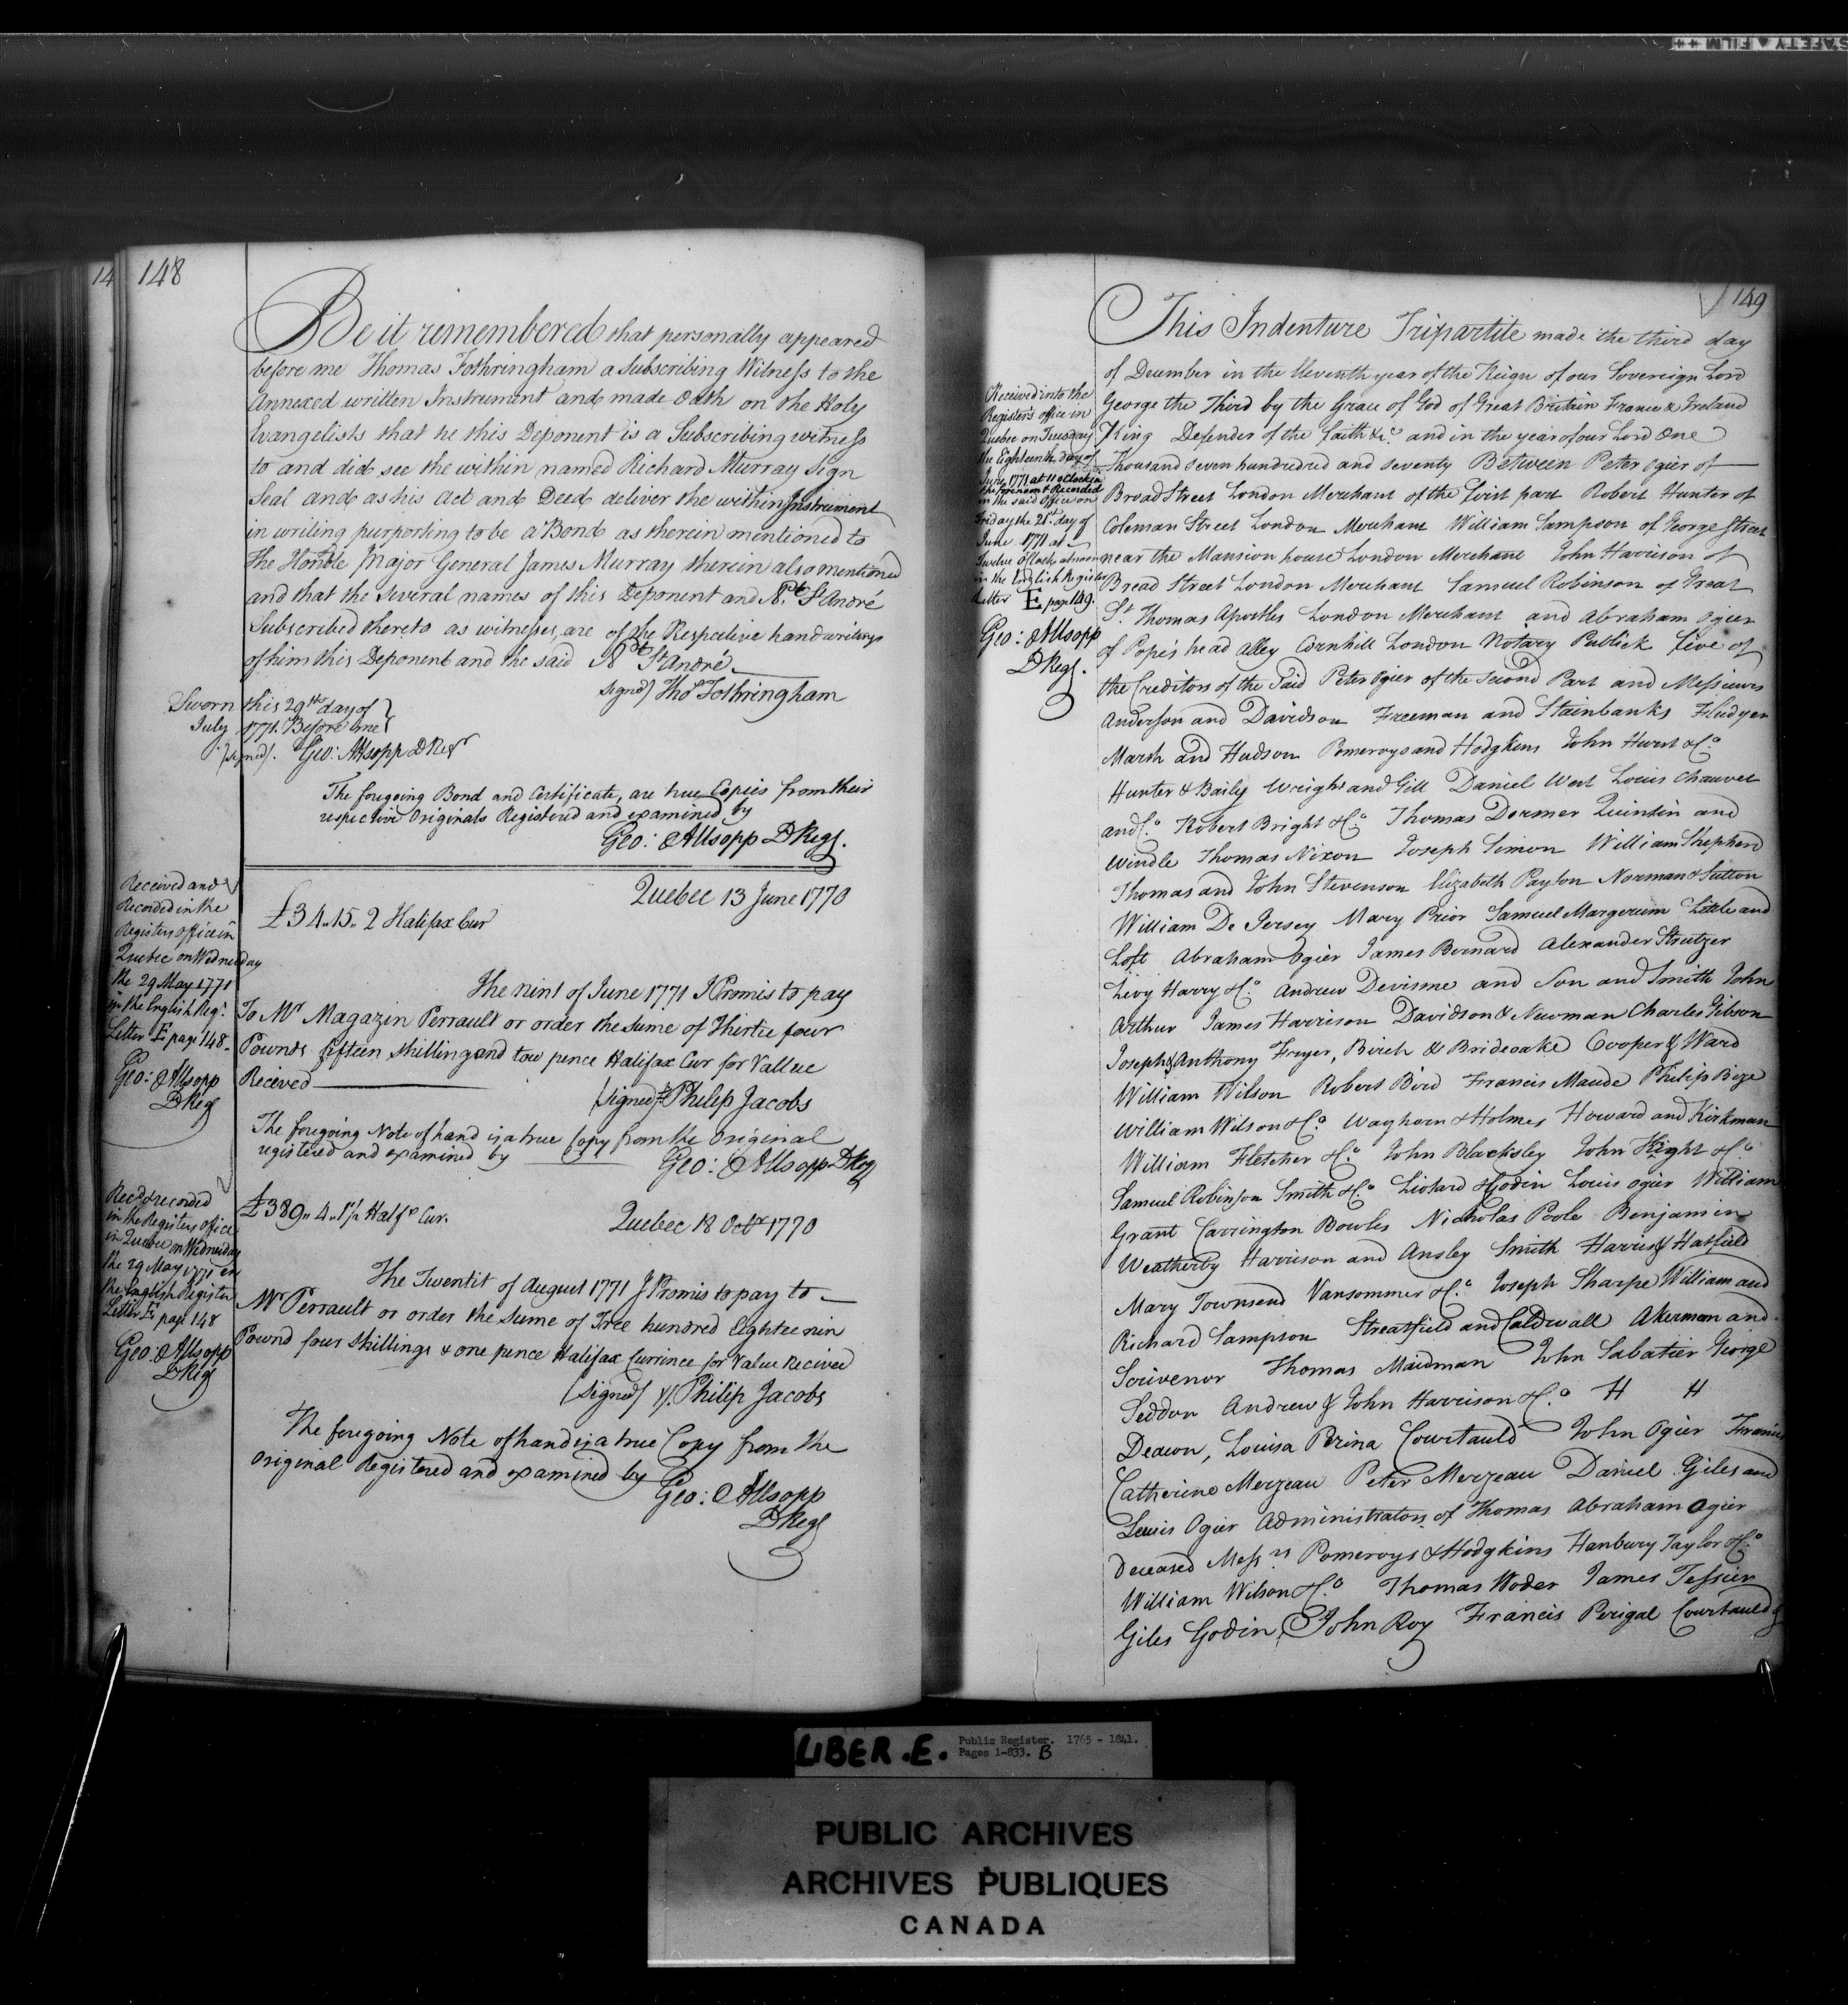 SAFETY ▲ FILM ++
14
148
Be it remembered that personally appeared
before me Thomas Fothringham a Subscribing Witness to the
Annexed written Instrument and made Oath on the Holy
Evangelists that he this Deponent is a Subscribing witness
to and did see the within named Richard Murray sign
Seal and as his Act and Deed deliver the within Instrument
in writing purporting to be a Bond as therein mentioned to
the Honble Major General James Murray therein also mentioned
and that the several names of this Deponent and St André
Subscribed thereto as witnesses, are of the Respective handwritings
of him this Deponent and the said St André
signed) Tho.s Fothringham
Sworn this 29th day of
July 1771. Before me
(signed). Geo: Allsopp D Regr
The foregoing Bond and Certificate, are true Copies from their
respective Originals Registered and examined by
Geo: Allsopp DRegr.
Received and
Recorded in the
Registers office in
Quebec on Wednesday
the 29 May 1771
in the English Regr.
Letter E page 148.
Geo: Allsopp
DRegr
Quebec 13 June 1770
£34..15..2 Halifax Cur
The nint of June 1771 I Promis to pay
To Mr Magazin Perrault or order the sume of Thirtie four
Pownds fifteen shilling and tow pence Halifax Cur for Vallue
Receved
(signed) Philip Jacobs
The foregoing Note of hand is a true Copy from the Original
registered and examined by
Geo: Allsopp DRegr
Recd & recorded
in the Registers office
in Quebec on Wednesday
the 29 May 1771 in
the English Register
Letter E page 148
Geo: Allsopp
DRegr
£389..4..1½ Halfx Cur.
Quebec 18 Octr 1770
The Twentit of August 1771 I Promis to pay to
Mr Perrault or order the sume of Tree hundred Eightee nin
Pownd four shillings & one pence Halifax Currince for Value Recived
(signed) Philip Jacobs
The foregoing Note of hand is a true Copy from the
Original Registered and examined by
Geo: Allsopp
DRegr
149
This Indenture Tripartite made the third day
of December in the Eleventh year of the Reign of our Sovereign Lord
George the Third by the Grace of God of Great Britain France & Ireland
King Defender of the faith &c. and in the year of our Lord One
Thousand seven hundred and seventy Between Peter Ogier of
Broad Street London Merchant of the First part Robert Hunter of
Coleman Street London Merchant William Sampson of George Street
near the Mansion house London Merchant John Harrison of
Bread Street London Merchant Samuel Robinson of Great
St. Thomas Apostles London Merchant and Abraham Ogier
of Pope's head Alley Cornhill London Notary Publick five of
the Creditors of the Said Peter Ogier of the Second Part and Messieurs
Anderson and Davidson Freeman and Stainbanks Fludyer
Marsh and Hudson Pomeroys and Hodgkins John Hurst & Co.
Hunter & Baily Wright and Gill Daniel West Louis Chauvet
and Co. Robert Bright & Co. Thomas Dermer Quintin and
Windle Thomas Nixon Joseph Simon William Shepherd
Thomas and John Stevenson Elizabeth Payton Norman & Sutton
William De Jersey Mary Prior Samuel Margerum Little and
Loft Abraham Ogier James Bernard Alexander Streitzer
Levy Harry & Co. Andrew Devisme and Son and Smith John
Arthur James Harrison Davidson & Newman Charles Gibson
Joseph & Anthony Fryer, Birch & Brideoake Cooper & Ward
William Wilson Robert Bird Francis Maude Philip Bize
William Wilson & Co. Waghorn & Holmes Howard and Kirkman
William Fletcher & Co. John Blacksley John Hight & Co.
Samuel Robinson Smith & Co. Liotard & Godin Louis Ogier William
Grant Carrington Bowles Nicholas Poole Benjamin
Weatherby Harrison and Ansley Smith Harris & Hatfield
Mary Townsend Vansommer & Co. Joseph Sharpe William and
Richard Sampson Streatfield and Caldwall Akerman and
Scrivenor Thomas Maidman John Sabatier George
Seddon Andrew & John Harrison & Co. H H
Deacon, Louisa Perina Courtauld John Ogier Francis
Catherine Merzeau Peter Merzeau Daniel Giles and
Lewis Ogier Administrators of Thomas Abraham Ogier
deceased Messrs Pomeroys & Hodgkins Hanbury Taylor & Co.
William Wilson & Co. Thomas Woder James Tessier
Giles Godin, John Roy Francis Perigal Courtauld &
Received into the
Registers office in
Quebec on Tuesday
the Eighteenth day of
June 1771 at 11 oClock in
the forenoon & Recorded
in the said office on
Friday the 21st. day of
June 1771 at
Twelve oClock at noon
in the English Register
Letter E page 149.
Geo: Allsopp
DRegr.
LIBER.E.
Public Register. 1765 - 1841.
Pages 1-833. B
PUBLIC ARCHIVES
ARCHIVES PUBLIQUES
CANADA